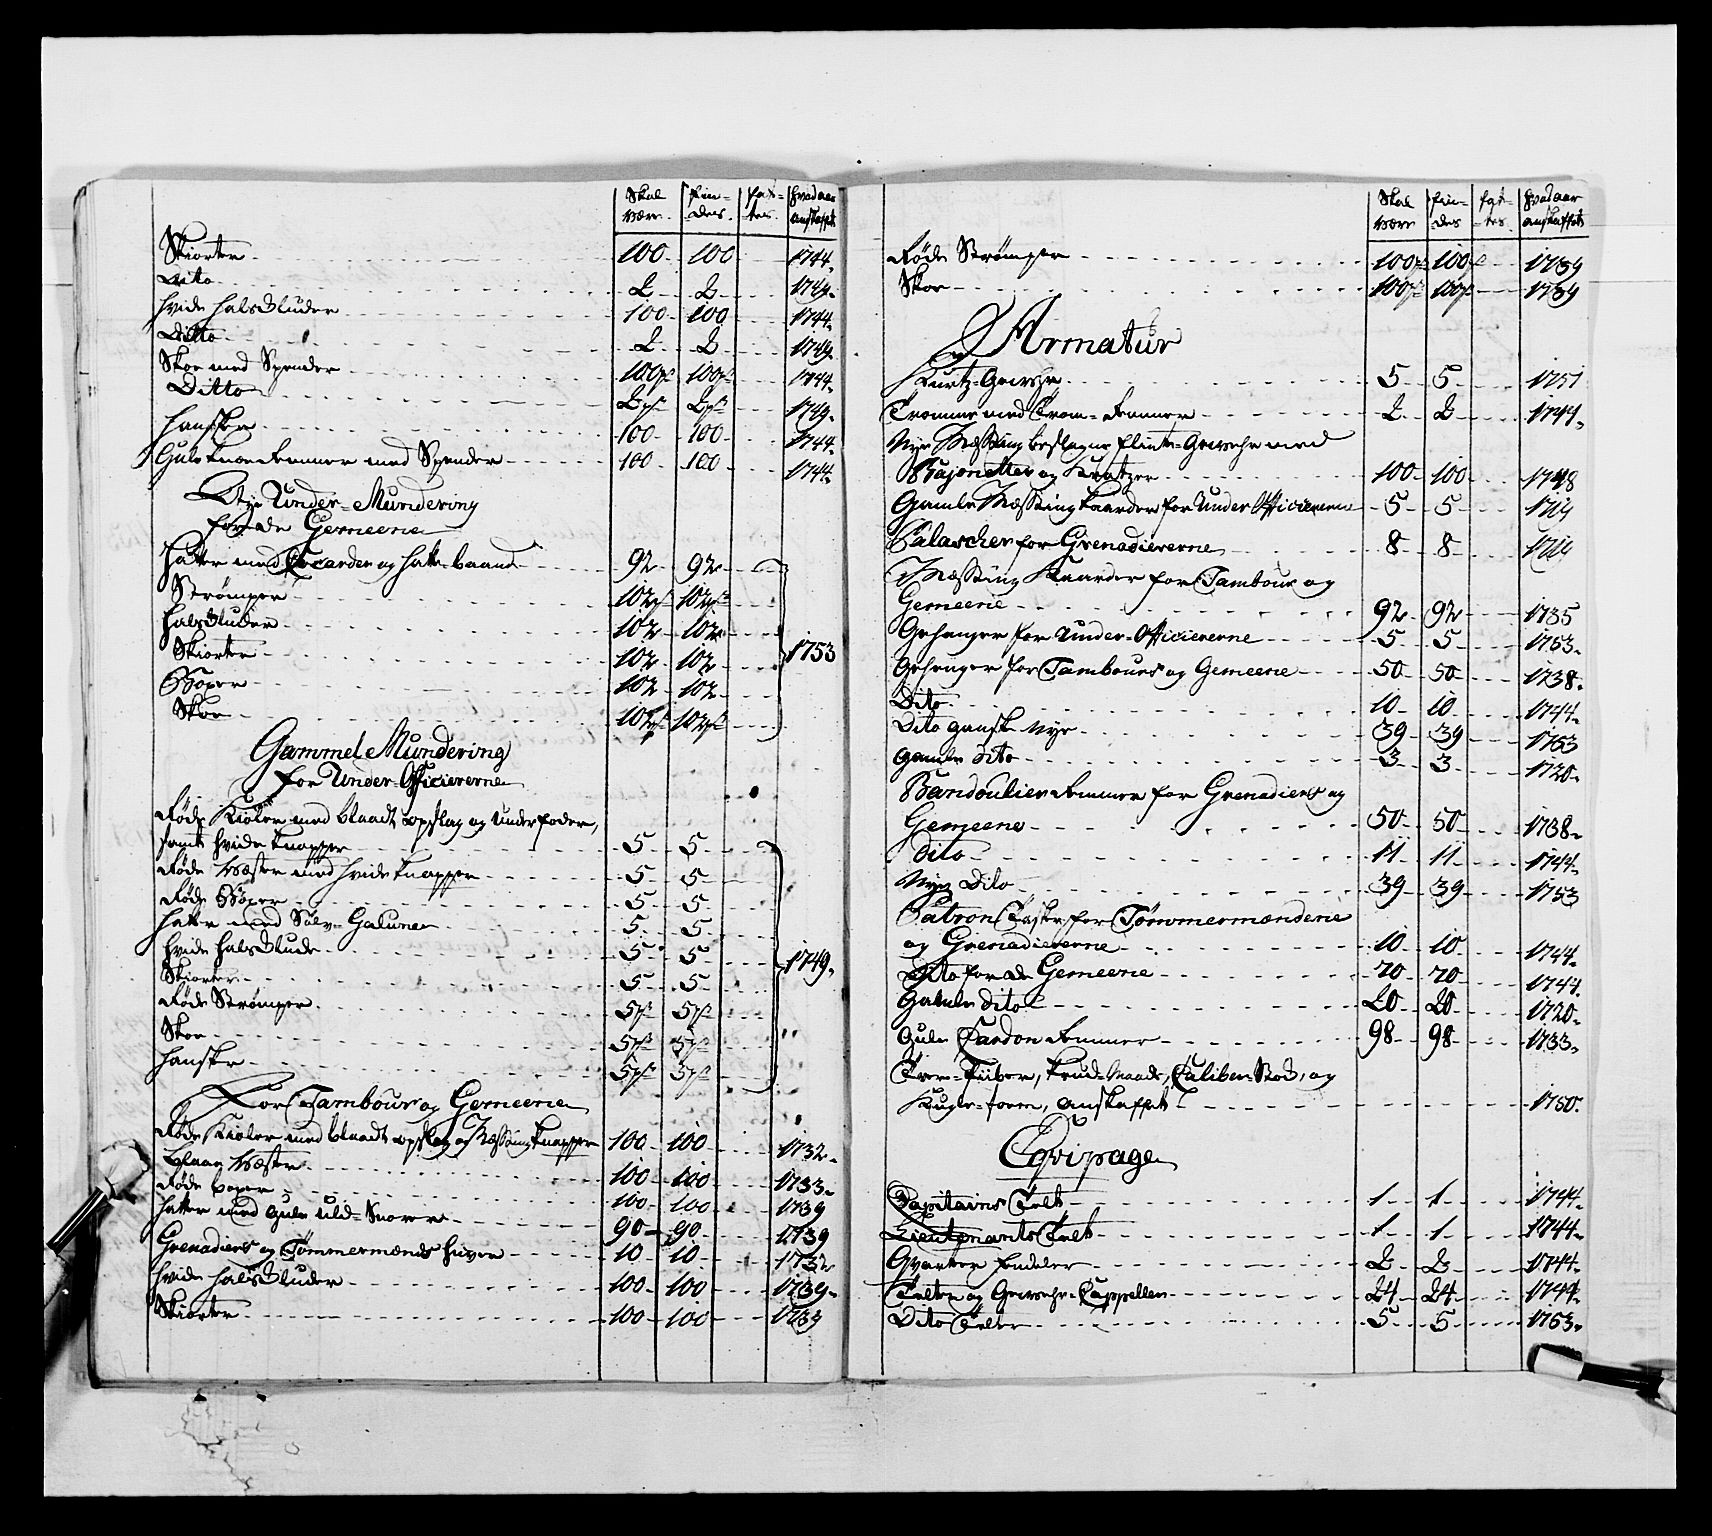 Skal være. | fin-des. | fat-tes. | hvad aar anskaffet
Skiorter | 100 | 100 | 1744.
Dito | 2 | 2 | 1749.
hvide halsKluder | 100 | 100 | 1744.
Ditto | 2 | 2 | 1749.
Skoe med Spender | 100 p | 100 p | 1744.
Ditto | 2 p | 2 p | 1749.
Handsker | 100 | 100 | 1744.
Gule Knæe Remmer med Spender | 100 | 100 | 1744.
Nye Under-Mundering
for de Gemeene
Hatter med Cocarder og hatte baand | 92 | 92
Strømper | 102 p | 102 p
halsKluder | 102 | 102
Skiorter | 102 | 102 | 1753
Boxer | 102 | 102
Skoe | 102 p | 102 p
Gammel Mundering
for Under-Officiererne
Røde Kioler med blaadt opslag og Underfoder,
samt hvide Knapper | 5 | 5
Røde Wæster med hvide Knapper | 5 | 5
Røde Boxer | 5 | 5
Hatter med Sølv-Galuner | 5 | 5
hvide halsKlude | 5 | 5 | 1749.
Skiorter | 5 | 5
Røde Strømper | 5 p | 5 p
Skoe | 5 p | 5 p
Handsker | 5 p | 5 p
For Tambour og Gemeene
Røde Kioler med blaadt opslag og Messing Knapper | 100 | 100 | 1732.
Blaae Wæster | 100 | 100 | 1733.
Røde boxer | 100 | 100 | 1739
Hatter med gule uld-Snorer | 90 | 90 | 1739
Grenadiers og Tømmermænds huver | 10 | 10 | 1732
hvide halsKluder | 100 | 100 | 1739.
Skiorter | 100 | 100 | 1739
Skal være | fin-des | fat-tes | hvad aar anskaffet
Røde Strømper | 100 p | 100 p | 1739
Skoe | 100 p | 100 p | 1739
Armatur
Kurtz-Gevehr | 5 | 5 | 1751
Tromme med Trom-Remmer | 2 | 2 | 1744.
Nye Messing beslagne flinte-Gevæhr med
Bajonetter og Kratzer | 100 | 100 | 1748
Gamle Messing Kaarder for Under Officiererne | 5 | 5
Palascher for Grenadiererne | 8 | 8
Messing Kaarder for Tambour og
Gemeene | 92 | 92 | 1735
Gehænger for Under-Officiererne | 5 | 5 | 1753.
Gehænger for Tambours og Gemeene | 50 | 50 | 1738.
Dito | 10 | 10 | 1744.
Dito gansk Nye | 39 | 39 | 1753
Gamle Dito | 3 | 3 | 1720.
Bandoulier Remmer for Grenadiers og
Gemeene | 50 | 50 | 1738.
Dito | 11 | 11 | 1744.
Nye Dito | 39 | 39 | 1753
Patron Taske for Tømmermændene
og Grenadiererne | 10 | 10 | 1744.
Dito for de Gemeene | 70 | 70 | 1744.
Gamle Dito | 20 | 20 | 1720.
Gule Cardon Remmer | 98 | 98 | 1733.
Træe-Fiiber, Krud-Maade, Caliber-Stok, og
Kugle-form, anskaffet | 1750.
Eqvipage
Capitains Telt | 1 | 1 | 1744.
Lieutenants Telt | 1 | 1 | 1744.
Qvarteer fendeler | 2 | 2 | 1744.
Telter og Gevæhr-Cappeller | 24 | 24 | 1744.
Dito Telter | 5 | 5 | 1753.